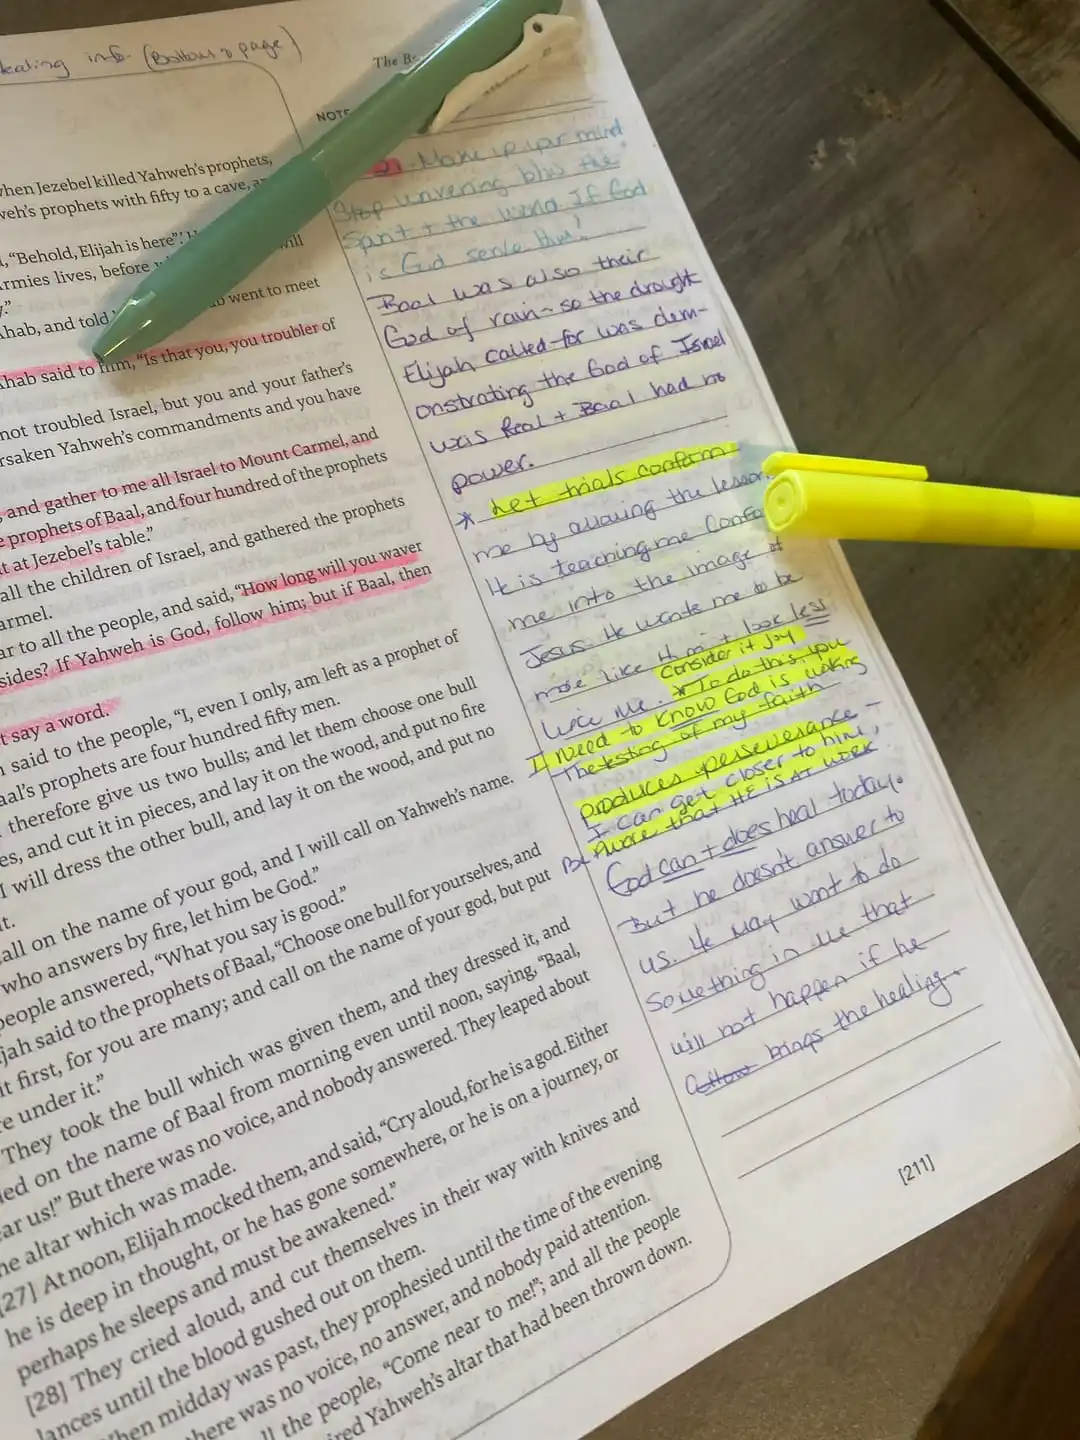 ealing info (Bottom of page)
The B
NOTE
when Jezebel killed Yahweh's prophets,
weh's prophets with fifty to a cave, a
, "Behold, Elijah is here".' will
Armies lives, before
."
went to meet
Ahab, and told
Ahab said to him, "Is that you, you troubler of
not troubled Israel, but you and your father's
rsaken Yahweh's commandments and you have
, and gather to me all Israel to Mount Carmel, and
e prophets of Baal, and four hundred of the prophets
t at Jezebel's table."
all the children of Israel, and gathered the prophets
armel.
ar to all the people, and said, "How long will you waver
sides? If Yahweh is God, follow him; but if Baal, then
t say a word.
said to the people, "I, even I only, am left as a prophet of
aal's prophets are four hundred fifty men.
therefore give us two bulls; and let them choose one bull
es, and cut it in pieces, and lay it on the wood, and put no fire
I will dress the other bull, and lay it on the wood, and put no
it.
call on the name of your god, and I will call on Yahweh's name.
who answers by fire, let him be God."
people answered, "What you say is good."
jah said to the prophets of Baal, "Choose one bull for yourselves, and
it first, for you are many; and call on the name of your god, but put
re under it."
They took the bull which was given them, and they dressed it, and
led on the name of Baal from morning even until noon, saying, "Baal,
ear us!" But there was no voice, and nobody answered. They leaped about
he altar which was made.
[27] At noon, Elijah mocked them, and said, "Cry aloud, for he is a god. Either
he is deep in thought, or he has gone somewhere, or he is on a journey, or
perhaps he sleeps and must be awakened."
[28] They cried aloud, and cut themselves in their way with knives and
lances until the blood gushed out on them.
When midday was past, they prophesied until the time of the evening
there was no voice, no answer, and nobody paid attention.
ll the people, "Come near to me!"; and all the people
ired Yahweh's altar that had been thrown down.
21. Make up your mind
Stop wavering b/w the
Spirit + the world. If God
is God serve Him!
Baal was also their
God of rain - so the drought
Elijah called for was dem-
onstrating the God of Israel
was Real + Baal had no
power.
* Let trials conform
me by allowing the lesson
He is teaching me confo
me into the image of
Jesus. He wants me to be
more like Him + look less
like me.
Consider it joy
* To do this, you
I need to know God is working
The testing of my faith
produces perseverance -
I can get closer to him,
Be Aware that HE IS AT WORK
God can + does heal today.
But he doesn't answer to
us. He may want to do
something in me that
will not happen if he
brings the healing.
[211]